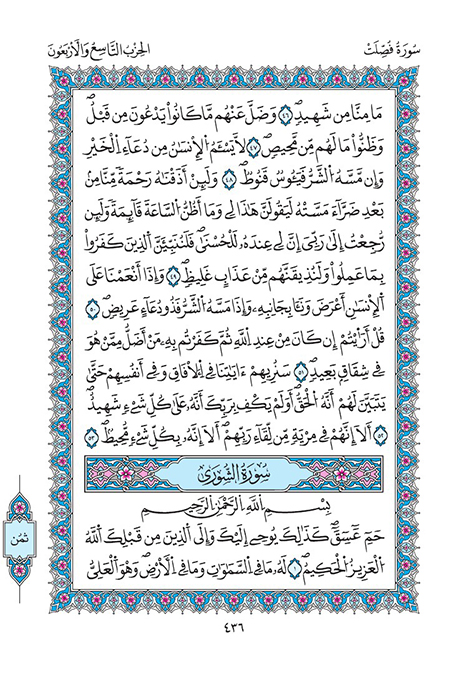 سُورَةُ فُصِّلَتْ
الحِزْبُ التَّاسِعُ وَالأَرْبَعُونَ
مَا مِنَّا مِن شَهِيدٖ ٤٦ وَضَلَّ عَنْهُم مَّا كَانُواْ يَدْعُونَ مِن قَبْلُ
وَظَنُّواْ مَا لَهُم مِّن مَّحِيصٖ ٤٧ لَّا يَسْـَٔمُ الْإِنسَٰنُ مِن دُعَآءِ الْخَيْرِ
وَإِن مَّسَّهُ الشَّرُّ فَيَـُٔوسٞ قَنُوطٞ ٤٨ وَلَئِنَ اَذَقْنَٰهُ رَحْمَةٗ مِّنَّا مِنۢ
بَعْدِ ضَرَّآءَ مَسَّتْهُ لَيَقُولَنَّ هَٰذَا لِے وَمَآ أَظُنُّ السَّاعَةَ قَآئِمَةٗ وَلَئِن
رُّجِعْتُ إِلَىٰ رَبِّيَ إِنَّ لِے عِندَهُۥ لَلْحُسْنَىٰ فَلَنُنَبِّئَنَّ الَّذِينَ كَفَرُواْ
بِمَا عَمِلُواْ وَلَنُذِيقَنَّهُم مِّنْ عَذَابٍ غَلِيظٖ ٤٩ وَإِذَآ أَنْعَمْنَا عَلَى
الْإِنسَٰنِ أَعْرَضَ وَنَـَٔا بِجَانِبِهِۦ وَإِذَا مَسَّهُ الشَّرُّ فَذُو دُعَآءٍ عَرِيضٖ ٥٠
قُلَ اَرَٰٓيْتُمُۥٓ إِن كَانَ مِنْ عِندِ اللَّهِ ثُمَّ كَفَرْتُم بِهِۦ مَنَ اَضَلُّ مِمَّنْ هُوَ
فِے شِقَاقِۭ بَعِيدٖ ٥١ سَنُرِيهِمُۥٓ ءَايَٰتِنَا فِے الْأٓفَاقِ وَفِےٓ أَنفُسِهِمْ حَتَّىٰ
يَتَبَيَّنَ لَهُمُۥٓ أَنَّهُ الْحَقُّ أَوَلَمْ يَكْفِ بِرَبِّكَ أَنَّهُۥ عَلَىٰ كُلِّ شَےْءٖ شَهِيدٌ
٥٢ اَلَآ إِنَّهُمْ فِے مِرْيَةٖ مِّن لِّقَآءِ رَبِّهِمُۥٓ أَلَآ إِنَّهُۥ بِكُلِّ شَےْءٖ مُّحِيطٞ ٥٣
سُورَةُ الشُّورَىٰ
بِسْمِ اللَّهِ الرَّحْمَٰنِ الرَّحِيمِ
حَمٓ عٓسٓقٓ كَذَٰلِكَ يُوحَىٰٓ إِلَيْكَ وَإِلَى الَّذِينَ مِن قَبْلِكَ اللَّهُ
الْعَزِيزُ الْحَكِيمُ ١ لَهُۥ مَا فِے السَّمَٰوَٰتِ وَمَا فِے الْأَرْضِ وَهُوَ الْعَلِيُّ
ثُمُن
٤٣٦